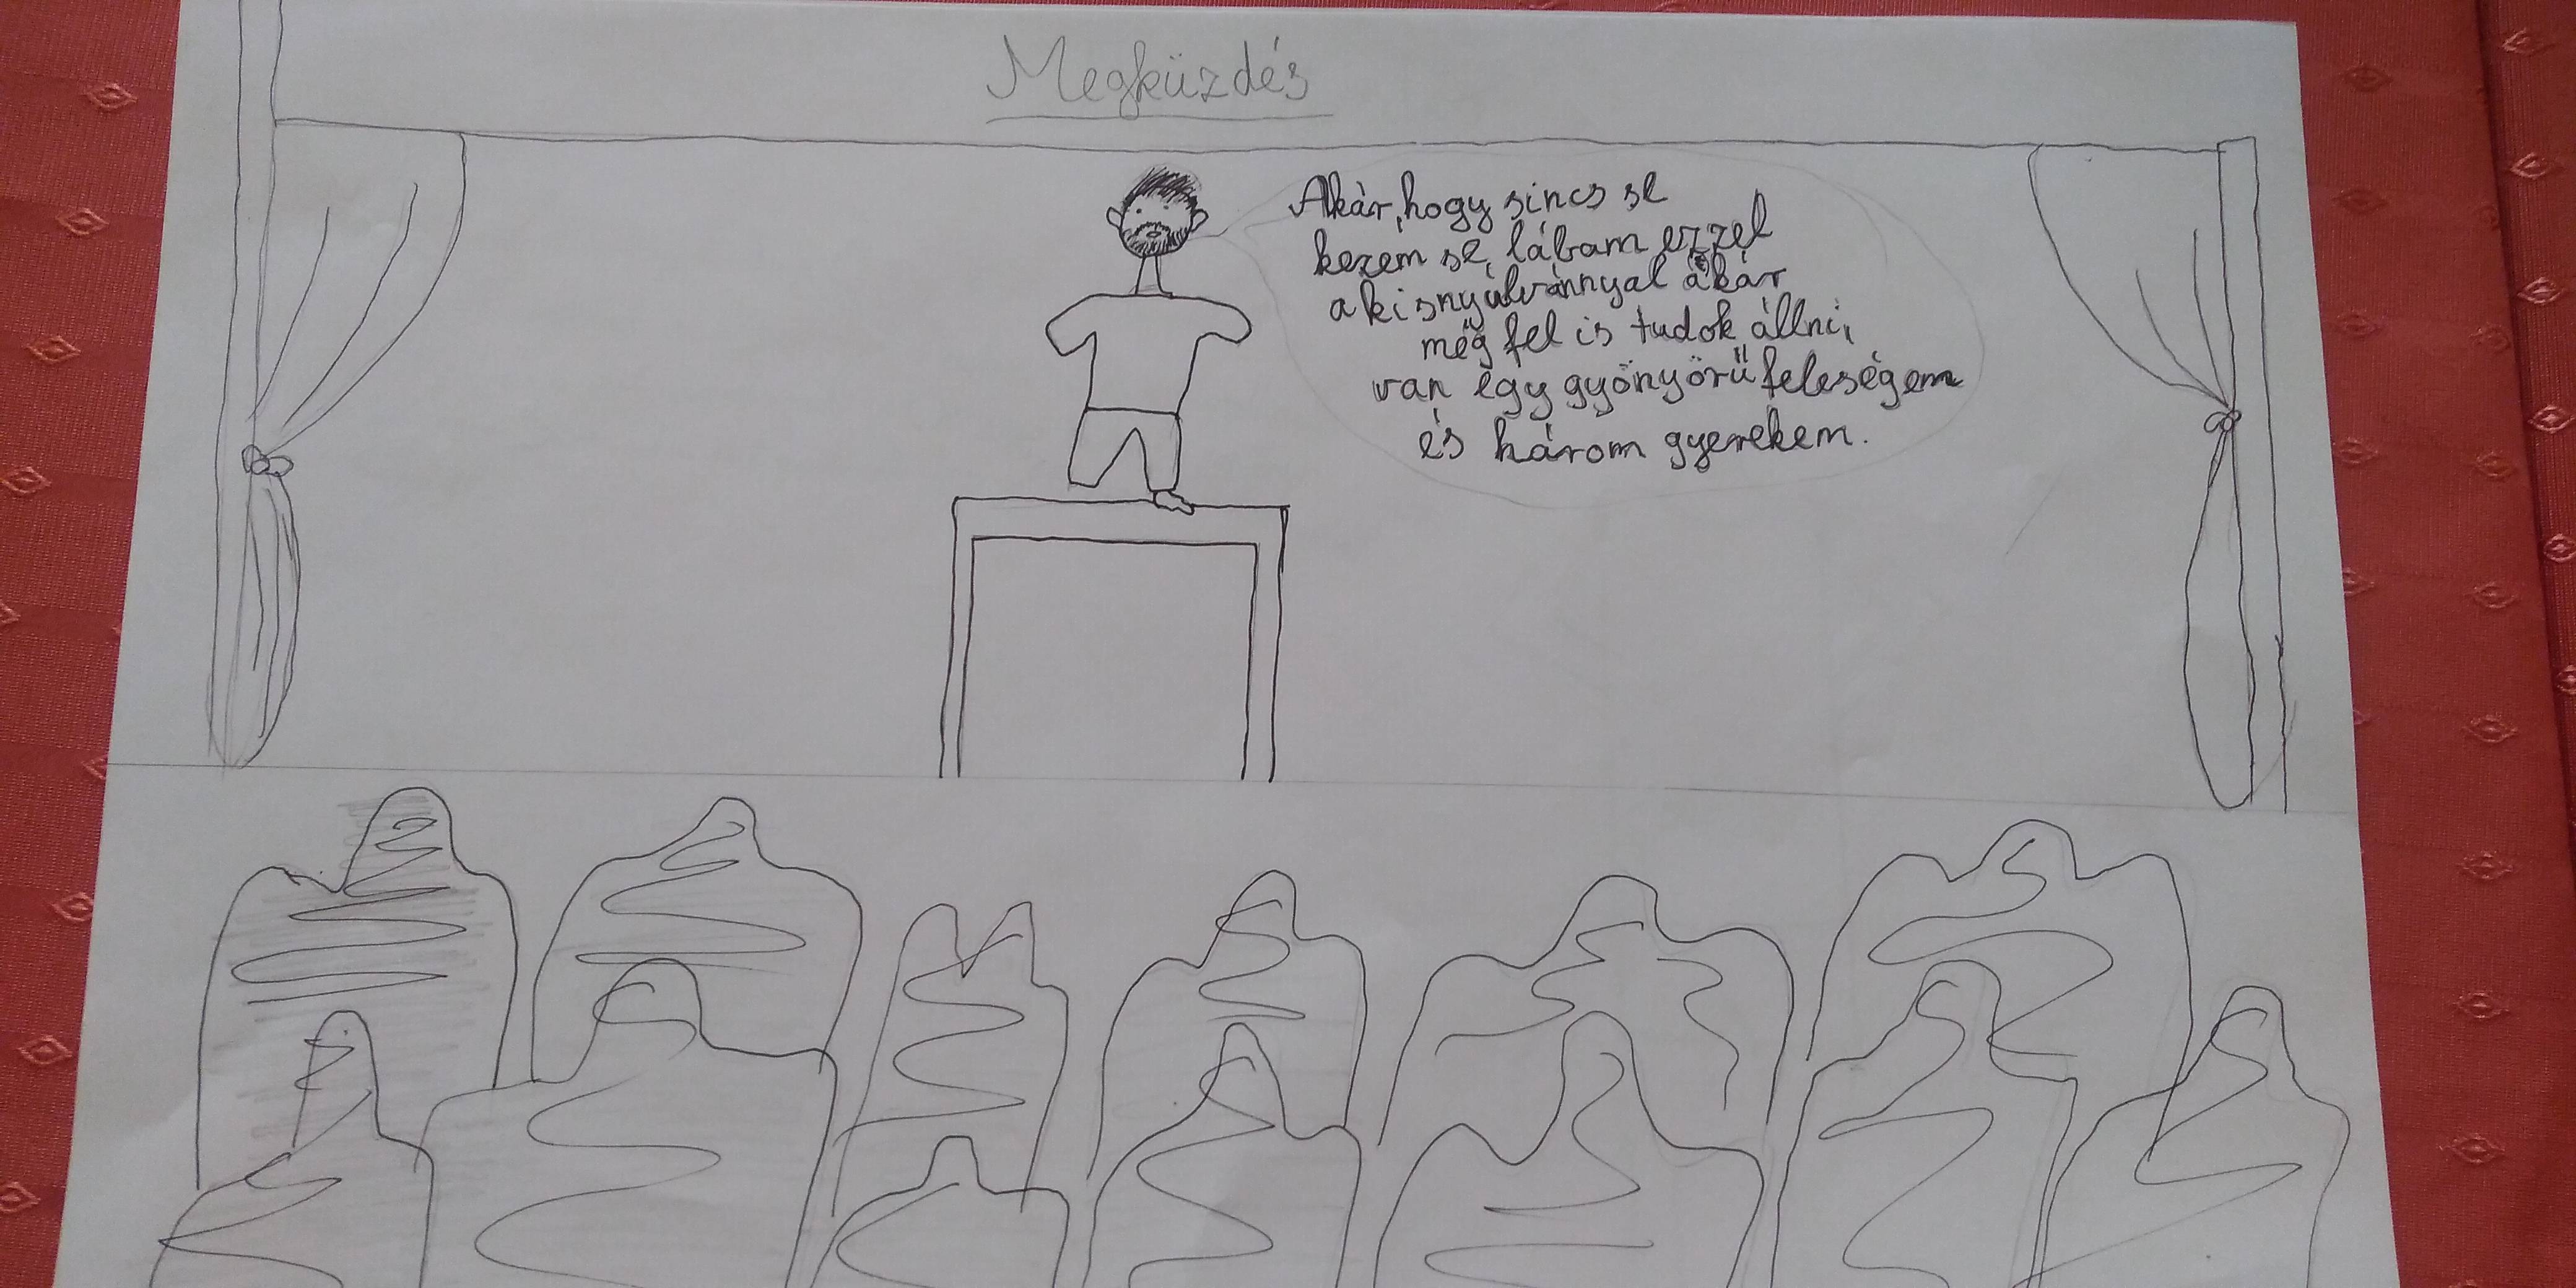 Megküzdés
Akár, hogy sincs se
kezem se, lábam ezzel
a kisnyúlvánnyal akár
még fel is tudok állni,
van egy gyönyörű feleségem
és három gyerekem.